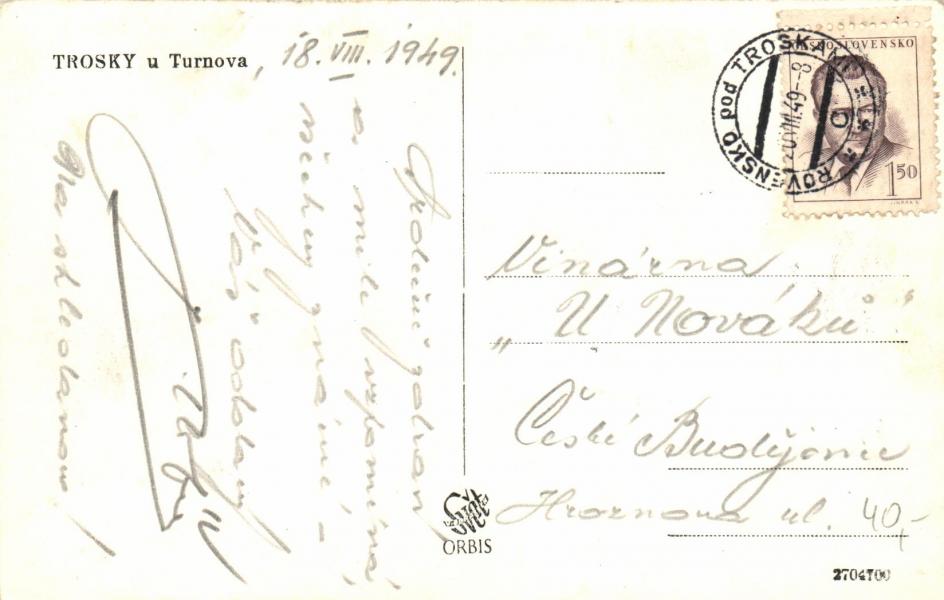 TROSKY u Turnova, 18. VIII. 1949.
Srdečně zdraví
a mile vzpomíná
všichni známí, –
Váš oddaný
Na shledanou!
ČESKOSLOVENSKO
1 50
ROVENSKO pod TROSKAMI
20.VIII.49-8
Vinárna
„U Nováků“
České Budějovice
Hroznova ul. 40,-
Svět
ORBIS
2704700